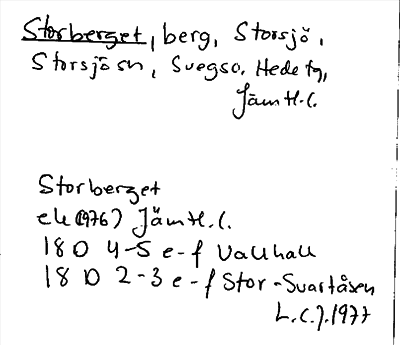 Storberget, berg, Storsjö,
Storsjö sn, Svegs o. Hede tg,
Jämtl.l.
Storberget
ek (1976) Jämtl.l.
18 D 4-5 e-f Vallhall
18 D 2-3 e-f Stor-Svartåsen
L.C.J. 1977